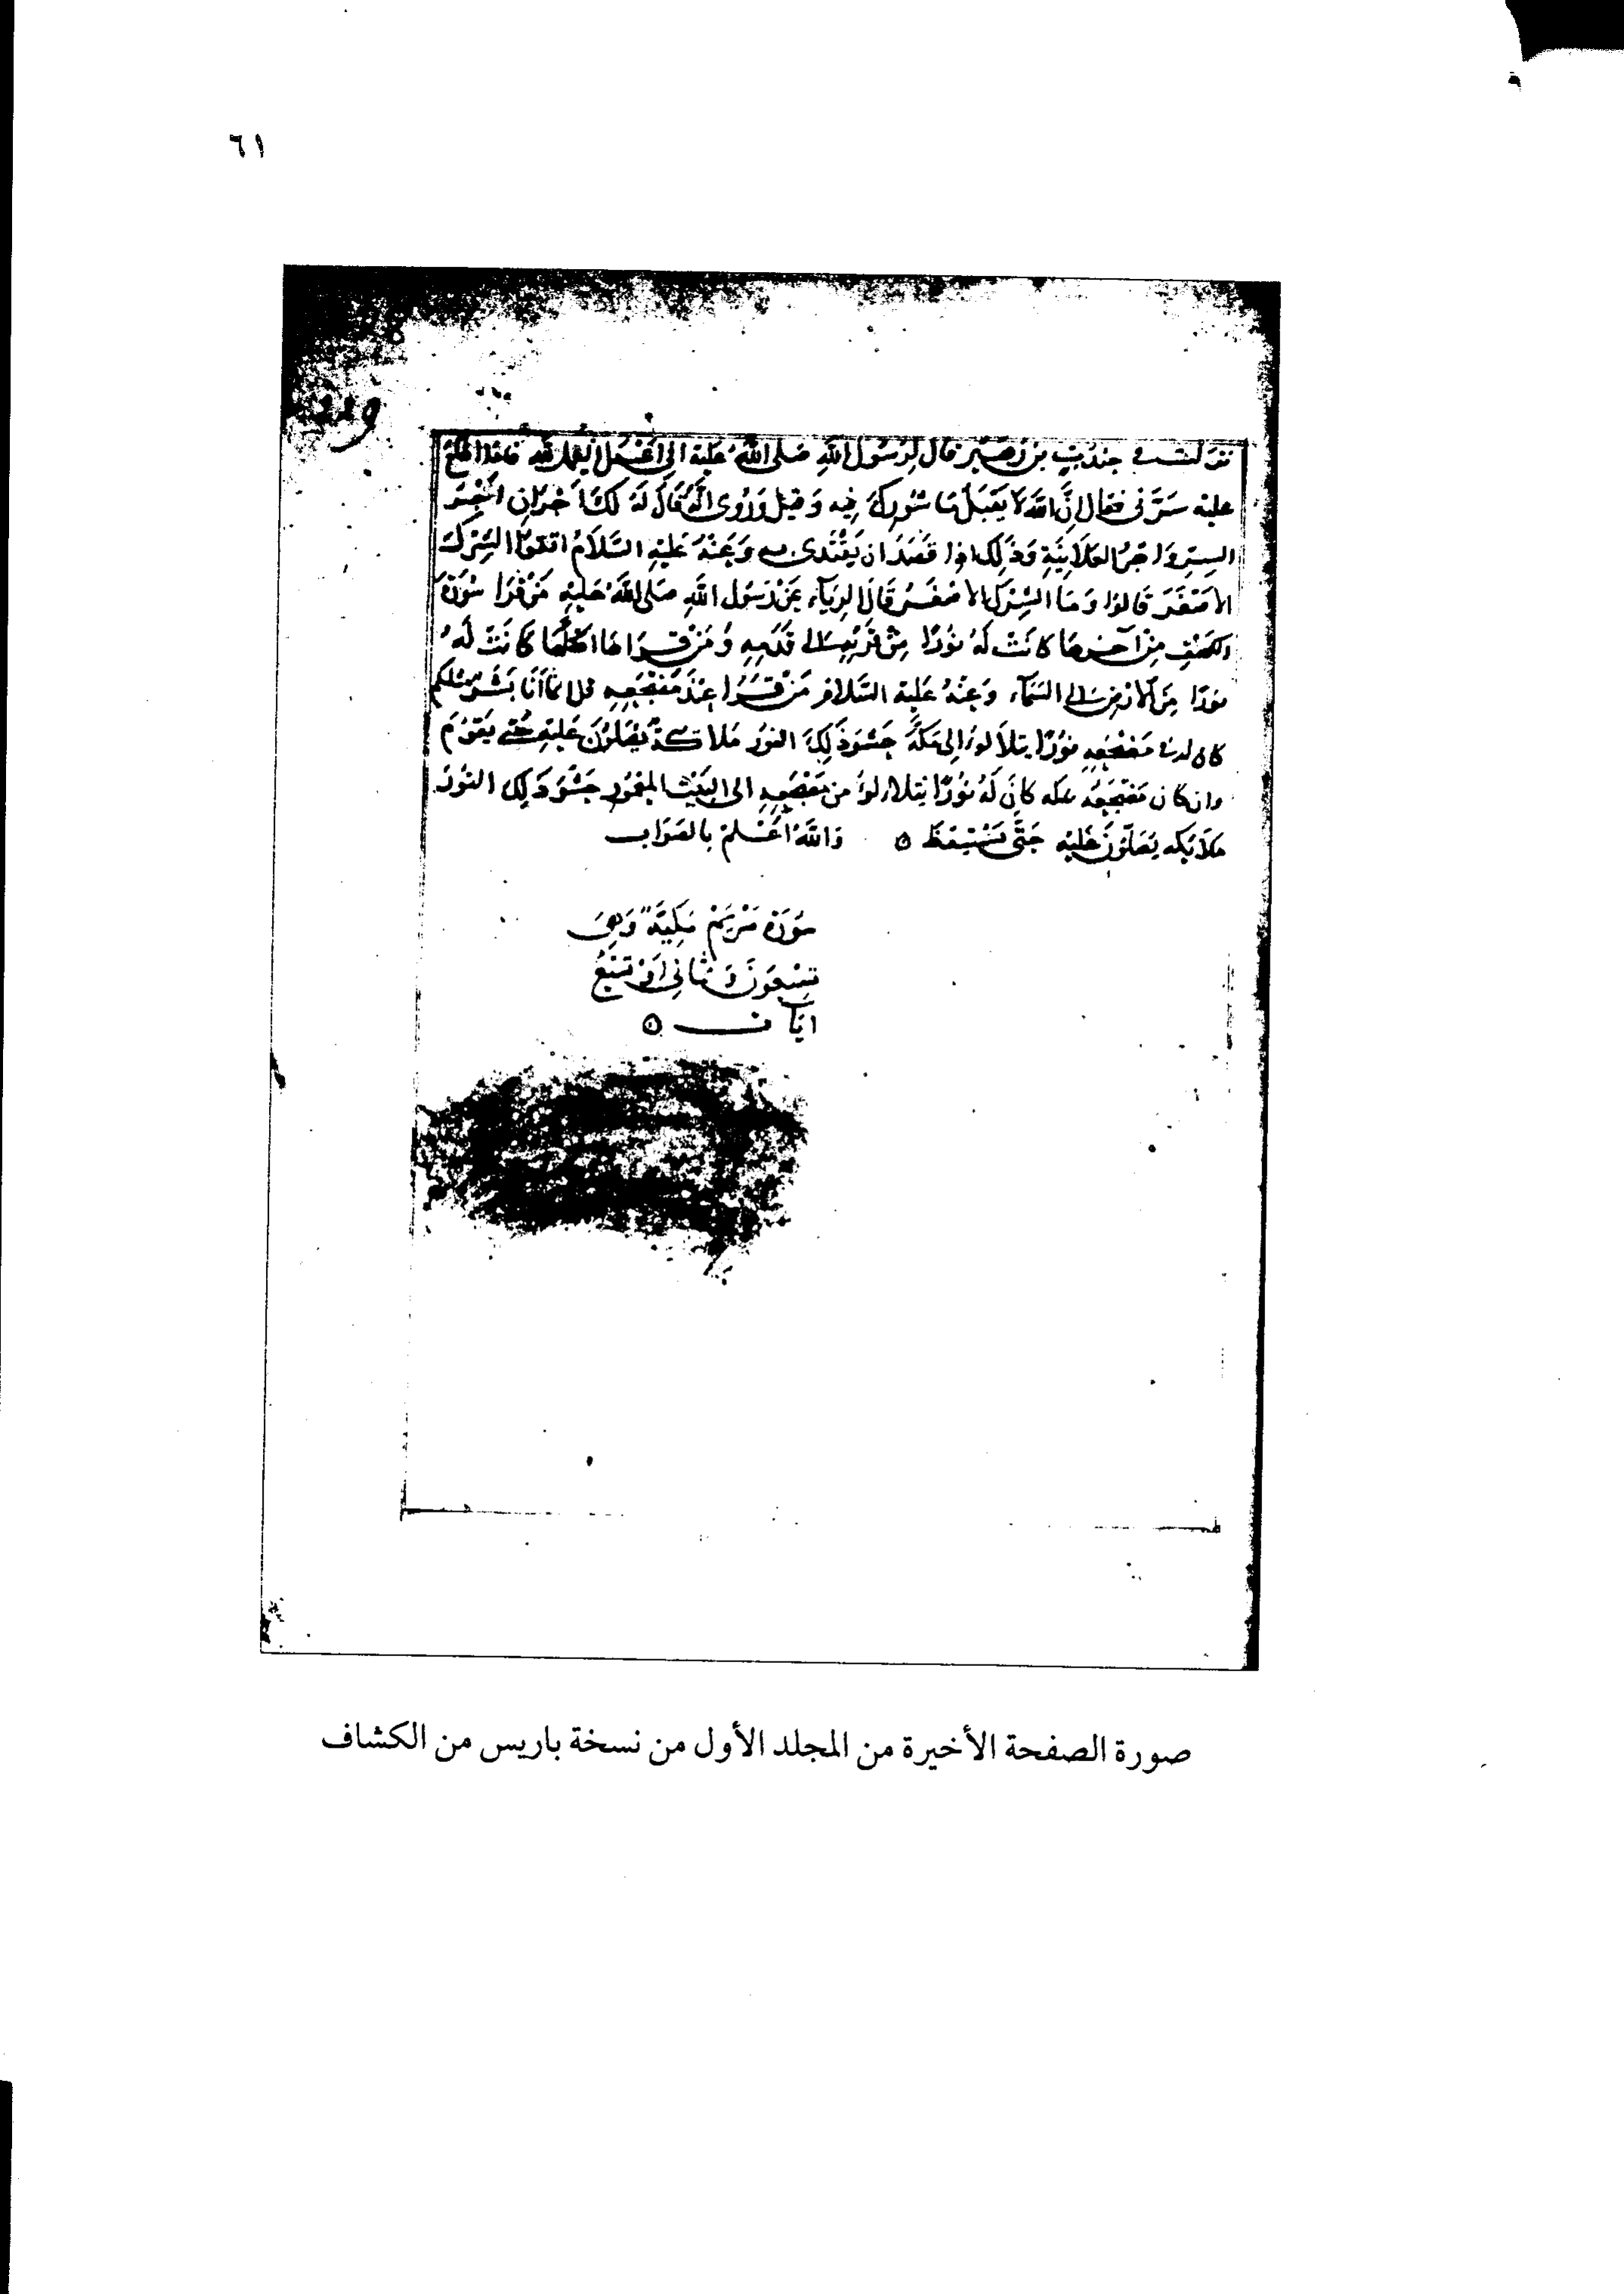 ٦١
نزلت في جندب بن زهير قال لرسول الله صلى الله عليه اني اعمل العمل لله فاذا اطلع
عليه سرني فقال ان الله لا يقبل ما شورك فيه وقيل وروى انه قال له لك اجران اجر
السر واجر العلانية وذلك اذا قصد ان يقتدى به وعنه عليه السلام اتقوا الشرك
الاصغر قالوا وما الشرك الاصغر قال الرياء عن رسول الله صلى الله عليه من قرا سورة
الكهف من آخرها كانت له نورا من قرنه الى قدمه ومن قراها كلها كانت له
نورا من الارض الى السماء وعنه عليه السلام من قرا عند مضجعه قل انما انا بشر مثلكم
كان له مضجعه نورا يتلالوا الى مكة حشو ذلك النور ملائكة يصلون عليه حتى يقوم
وان كان مضجعه بمكه كان له نورا يتلالوا من مضجعه الى البيت المعمور حشو ذلك النور
ملائكه يصلون عليه حتى يستيقظ ٥ والله اعلم بالصواب
سورة مريم مكية وهي
تسعون وثماني او تسع
ايات ٥
صورة الصفحة الأخيرة من المجلد الأول من نسخة باريس من الكشاف